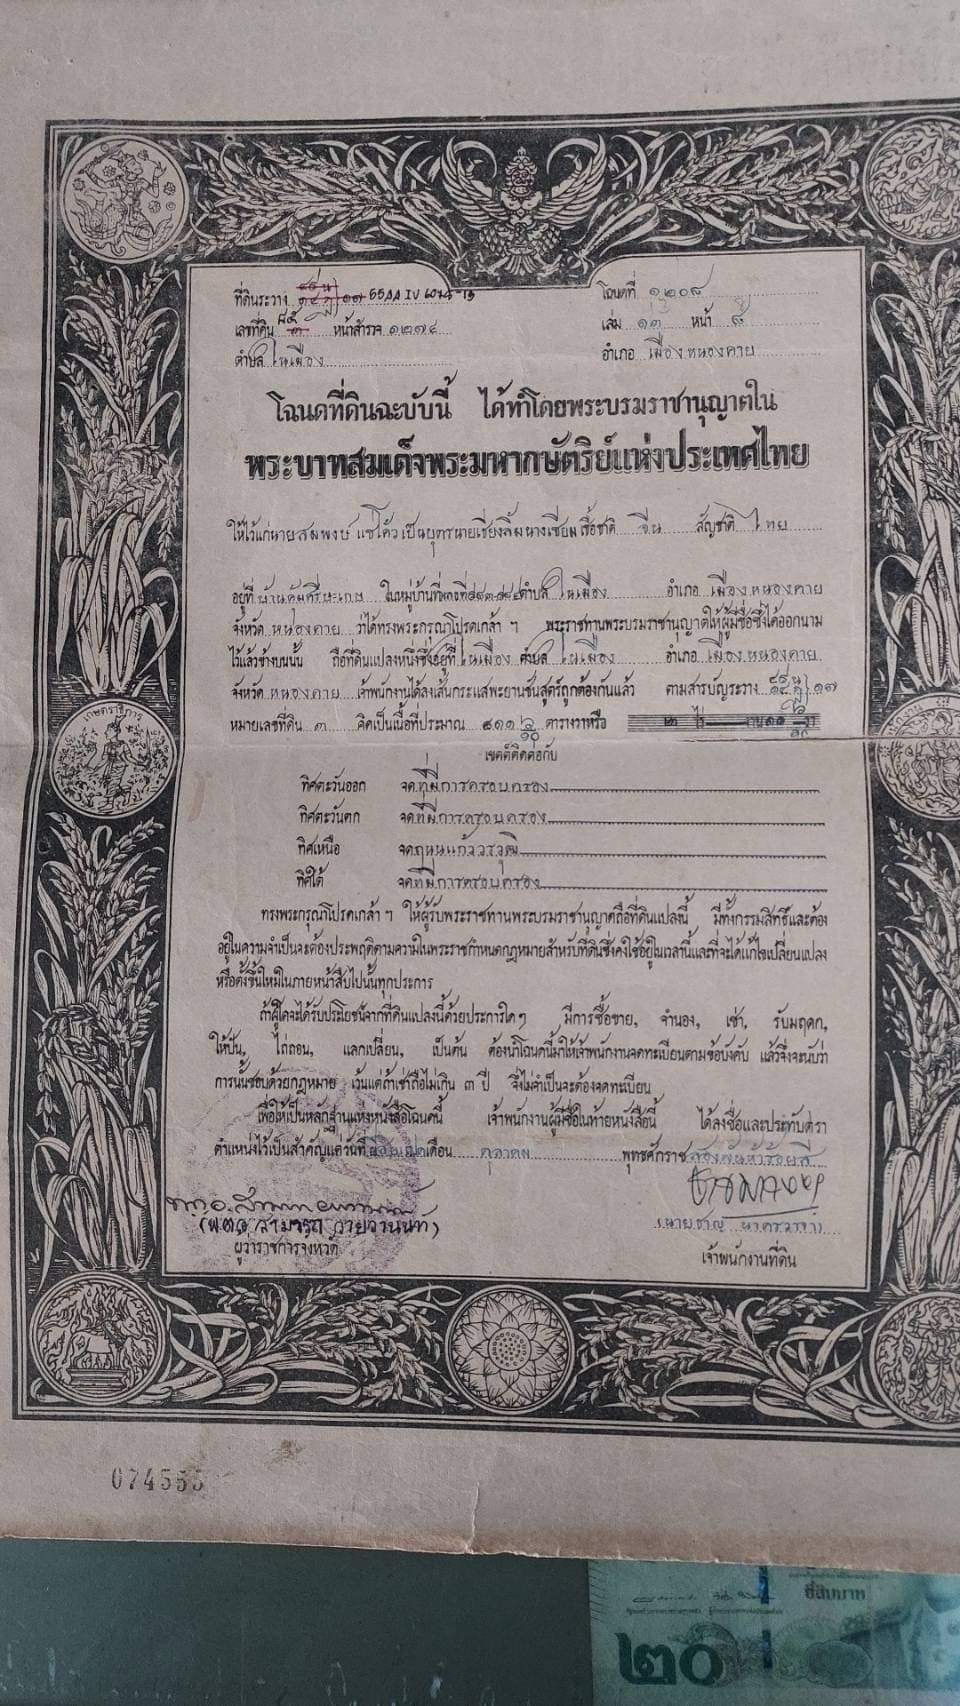 ที่ดินระวาง ๑๗ 5544 IV 6074-13 โฉนดที่ ๑๒๐๘
เลขที่ดิน ๓ หน้าสำรวจ ๑๒๗๔ เล่ม ๑๓ หน้า ๘
ตำบล ในเมือง อำเภอ เมืองหนองคาย
โฉนดที่ดินฉะบับนี้ ได้ทำโดยพระบรมราชานุญาตใน
พระบาทสมเด็จพระมหากษัตริย์แห่งประเทศไทย
ให้ไว้แก่นายสมพงษ์ แซ่โค้ว เป็นบุตรนายเชียงลิ้มนางเซียม เชื้อชาติ จีน สัญชาติ ไทย
อยู่ที่ ในหมู่บ้านที่ ตำบล ในเมือง อำเภอ เมืองหนองคาย
จังหวัด หนองคาย ว่าได้ทรงพระกรุณาโปรดเกล้า ฯ พระราชทานพระบรมราชานุญาตให้ผู้มีชื่อซึ่งได้ออกนาม
ไว้แล้วข้างบนนั้น ถือที่ดินแปลงหนึ่งซึ่งอยู่ที่ ในเมือง ตำบล ในเมือง อำเภอ เมืองหนองคาย
จังหวัด หนองคาย เจ้าพนักงานได้ลงเส้นกระแสพะยานชันสูตร์ถูกต้องกันแล้ว ตามสารบัญระวาง ๑๗
หมายเลขที่ดิน ๓ คิดเป็นเนื้อที่ประมาณ ๘๑๑ ๖/๑๐ ตารางวาหรือ ๒ ไร่ งาน ๑๑ ๖/๑๐ วา
เขตต์ติดต่อกับ
ทิศตะวันออก จด ที่มีการครอบครอง
ทิศตะวันตก จด ที่มีการครอบครอง
ทิศเหนือ จด ถนนแก้ววรวุฒิ
ทิศใต้ จด ที่มีการครอบครอง
ทรงพระกรุณาโปรดเกล้า ฯ ให้ผู้รับพระราชทานพระบรมราชานุญาตถือที่ดินแปลงนี้ มีทั้งกรรมสิทธิ์และต้อง
อยู่ในความจำเป็นจะต้องประพฤติตามความในพระราชกำหนดกฎหมายสำหรับที่ดินซึ่งคงใช้อยู่ในเวลานี้และที่จะได้แก้ไขเปลี่ยนแปลง
หรือตั้งขึ้นใหม่ในภายหน้าสืบไปนั้นทุกประการ
ถ้าผู้ใดจะได้รับประโยชน์จากที่ดินแปลงนี้ด้วยประการใด ๆ มีการซื้อขาย, จำนอง, เช่า, รับมฤดก,
ให้ปัน, ไถ่ถอน, แลกเปลี่ยน, เป็นต้น ต้องนำโฉนดนี้มาให้เจ้าพนักงานจดทะเบียนตามข้อบังคับ แล้วจึ่งจะนับว่า
การนั้นชอบด้วยกฎหมาย เว้นแต่ถ้าเช่าถือไม่เกิน ๓ ปี จึ่งไม่จำเป็นจะต้องจดทะเบียน
เพื่อให้เป็นหลักฐานแห่งหนังสือโฉนดนี้ เจ้าพนักงานผู้มีชื่อในท้ายหนังสือนี้ ได้ลงชื่อและประทับตรา
ตำแหน่งไว้เป็นสำคัญแต่วันที่ เดือน ตุลาคม พุทธศักราช สองพันห้าร้อยสี่
ผู้ว่าราชการจังหวัด
เจ้าพนักงานที่ดิน
เกษตราธิการ
074555
ยี่สิบบาท
๒๐